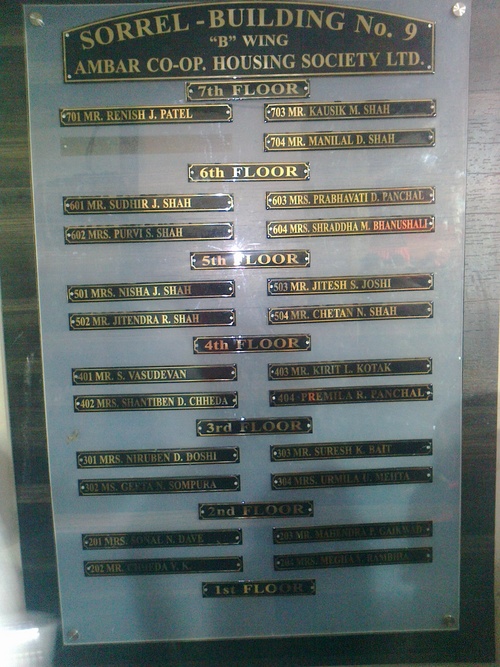 SORREL - BUILDING No. 9
"B" WING
AMBAR CO-OP. HOUSING SOCIETY LTD.
7th FLOOR
701 MR. RENISH J. PATEL
703 MR. KAUSIK M. SHAH
704 MR. MANILAL D. SHAH
6th FLOOR
601 MR. SUDHIR J. SHAH
603 MRS. PRABHAVATI D. PANCHAL
602 MRS. PURVI S. SHAH
604 MRS. SHRADDHA M. BHANUSHALI
5th FLOOR
501 MRS. NISHA J. SHAH
503 MR. JITESH S. JOSHI
502 MR. JITENDRA R. SHAH
504 MR. CHETAN N. SHAH
4th FLOOR
401 MR. S. VASUDEVAN
403 MR. KIRIT L. KOTAK
402 MRS. SHANTIBEN D. CHHEDA
404 PREMILA R. PANCHAL
3rd FLOOR
301 MRS. NIRUBEN D. DOSHI
303 MR. SURESH K. BAIT
302 MS. GEETA N. SOMPURA
304 MRS. URMILA U. MEHTA
2nd FLOOR
201 MRS. SONAL N. DAVE
203 MR. MAHENDRA P. GAIKWAD
202 MR. CHHEDA V. K.
MRS. MEGHA V. RAMBHIA
1st FLOOR